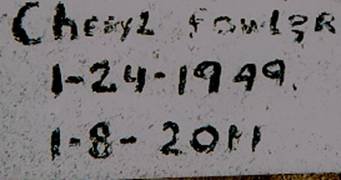 Cheryl Fowler
1-24-1949.
1-8-2011